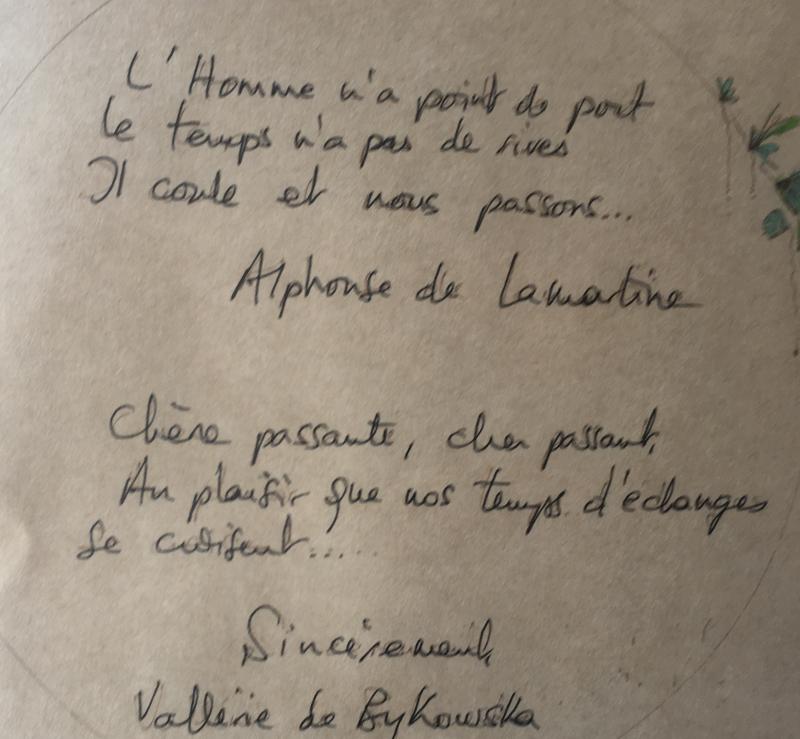 L'Homme n'a point de port
le temps n'a pas de rives
Il coule et nous passons...
Alphonse de Lamartine
Chère passante, cher passant,
Au plaisir que nos temps d'échanges
se croisent.....
Sincèrement,
Vallérie de Bykowska